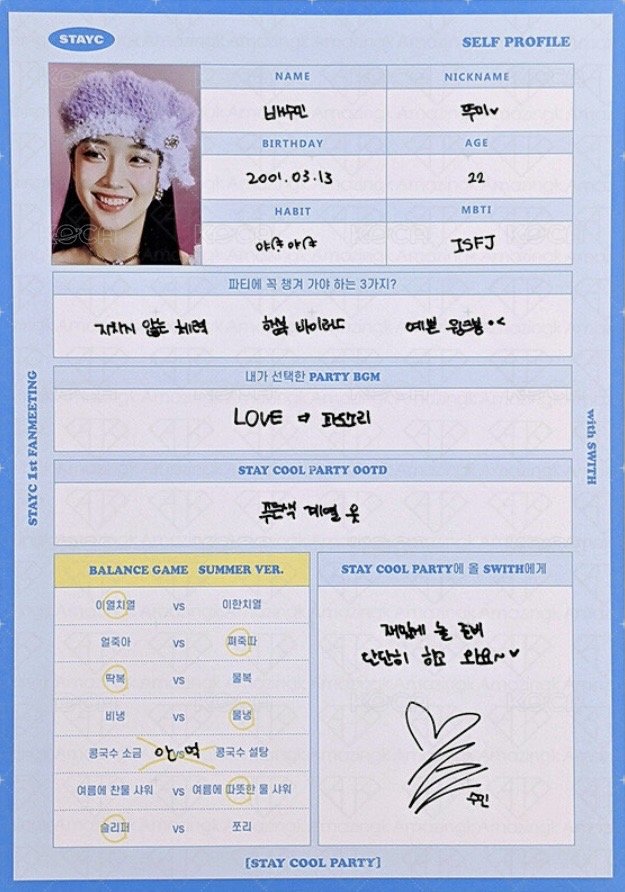 STAYC
SELF PROFILE
NAME
NICKNAME
배수민
뚜미♥
BIRTHDAY
AGE
2001.03.13
22
HABIT
MBTI
ISFJ
파티에 꼭 챙겨 가야 하는 3가지?
지치지 않는 체력 행복 바이러스 예쁜 윙크봉
내가 선택한 PARTY BGM
LOVE ⇒ 파스텔이
STAY COOL PARTY OOTD
주란색 계열 옷
STAYC 1st FANMEETING
with SWITH
BALANCE GAME SUMMER VER.
이열치열 vs 이한치열
얼죽아 vs 쪄죽따
딱복 vs 물복
비냉 vs 물냉
콩국수 소금 vs 콩국수 설탕
안 먹
여름에 찬물 샤워 vs 여름에 따뜻한 물 샤워
슬리퍼 vs 쪼리
STAY COOL PARTY에 올 SWITH에게
재밌게 놀 준비
단단히 하고 와요~♥
수민
[STAY COOL PARTY]